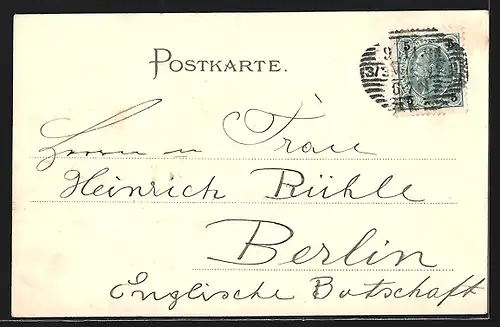 POSTKARTE.
Herrn u Frau
Heinrich Rühle
Berlin
Englische Botschaft